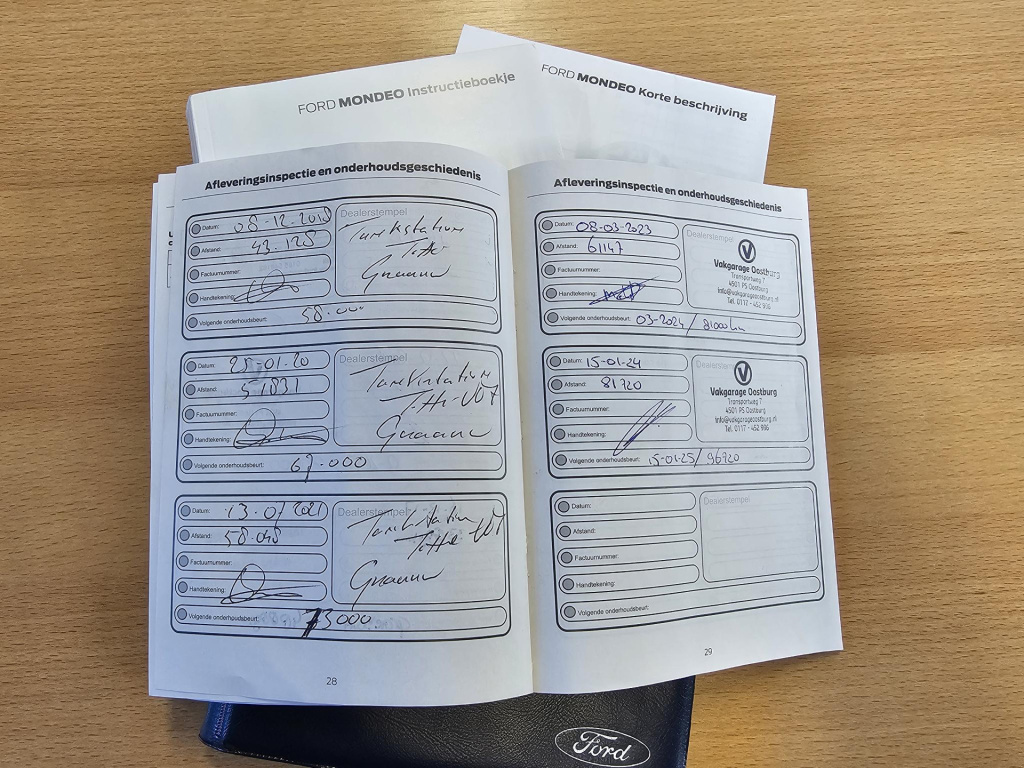 FORD MONDEO Instructieboekje
FORD MONDEO Korte beschrijving
Afleveringsinspectie en onderhoudsgeschiedenis
Datum: 08-12-2018
Afstand: 43.128
Factuurnummer:
Handtekening:
Dealerstempel
Volgende onderhoudsbeurt: 58.000
Datum: 25-01-20
Afstand: 51831
Factuurnummer:
Handtekening:
Dealerstempel
Volgende onderhoudsbeurt: 67.000
Datum: 13-01-2021
Afstand: 58.048
Factuurnummer:
Handtekening:
Dealerstempel
Volgende onderhoudsbeurt: 73000
28
Afleveringsinspectie en onderhoudsgeschiedenis
Datum: 08-03-2023
Afstand: 61147
Factuurnummer:
Handtekening:
Dealerstempel
Vakgarage Oostburg
Transportweg 7
4501 PS Oostburg
info@vakgarageoostburg.nl
Tel. 0117 - 452 896
Volgende onderhoudsbeurt: 03-2024 / 81000 km
Datum: 15-01-24
Afstand: 81720
Factuurnummer:
Handtekening:
Dealerstempel
Vakgarage Oostburg
Transportweg 7
4501 PS Oostburg
info@vakgarageoostburg.nl
Tel. 0117 - 452 896
Volgende onderhoudsbeurt: 15-01-25 / 96720
Datum:
Afstand:
Factuurnummer:
Handtekening:
Dealerstempel
Volgende onderhoudsbeurt:
29
Ford